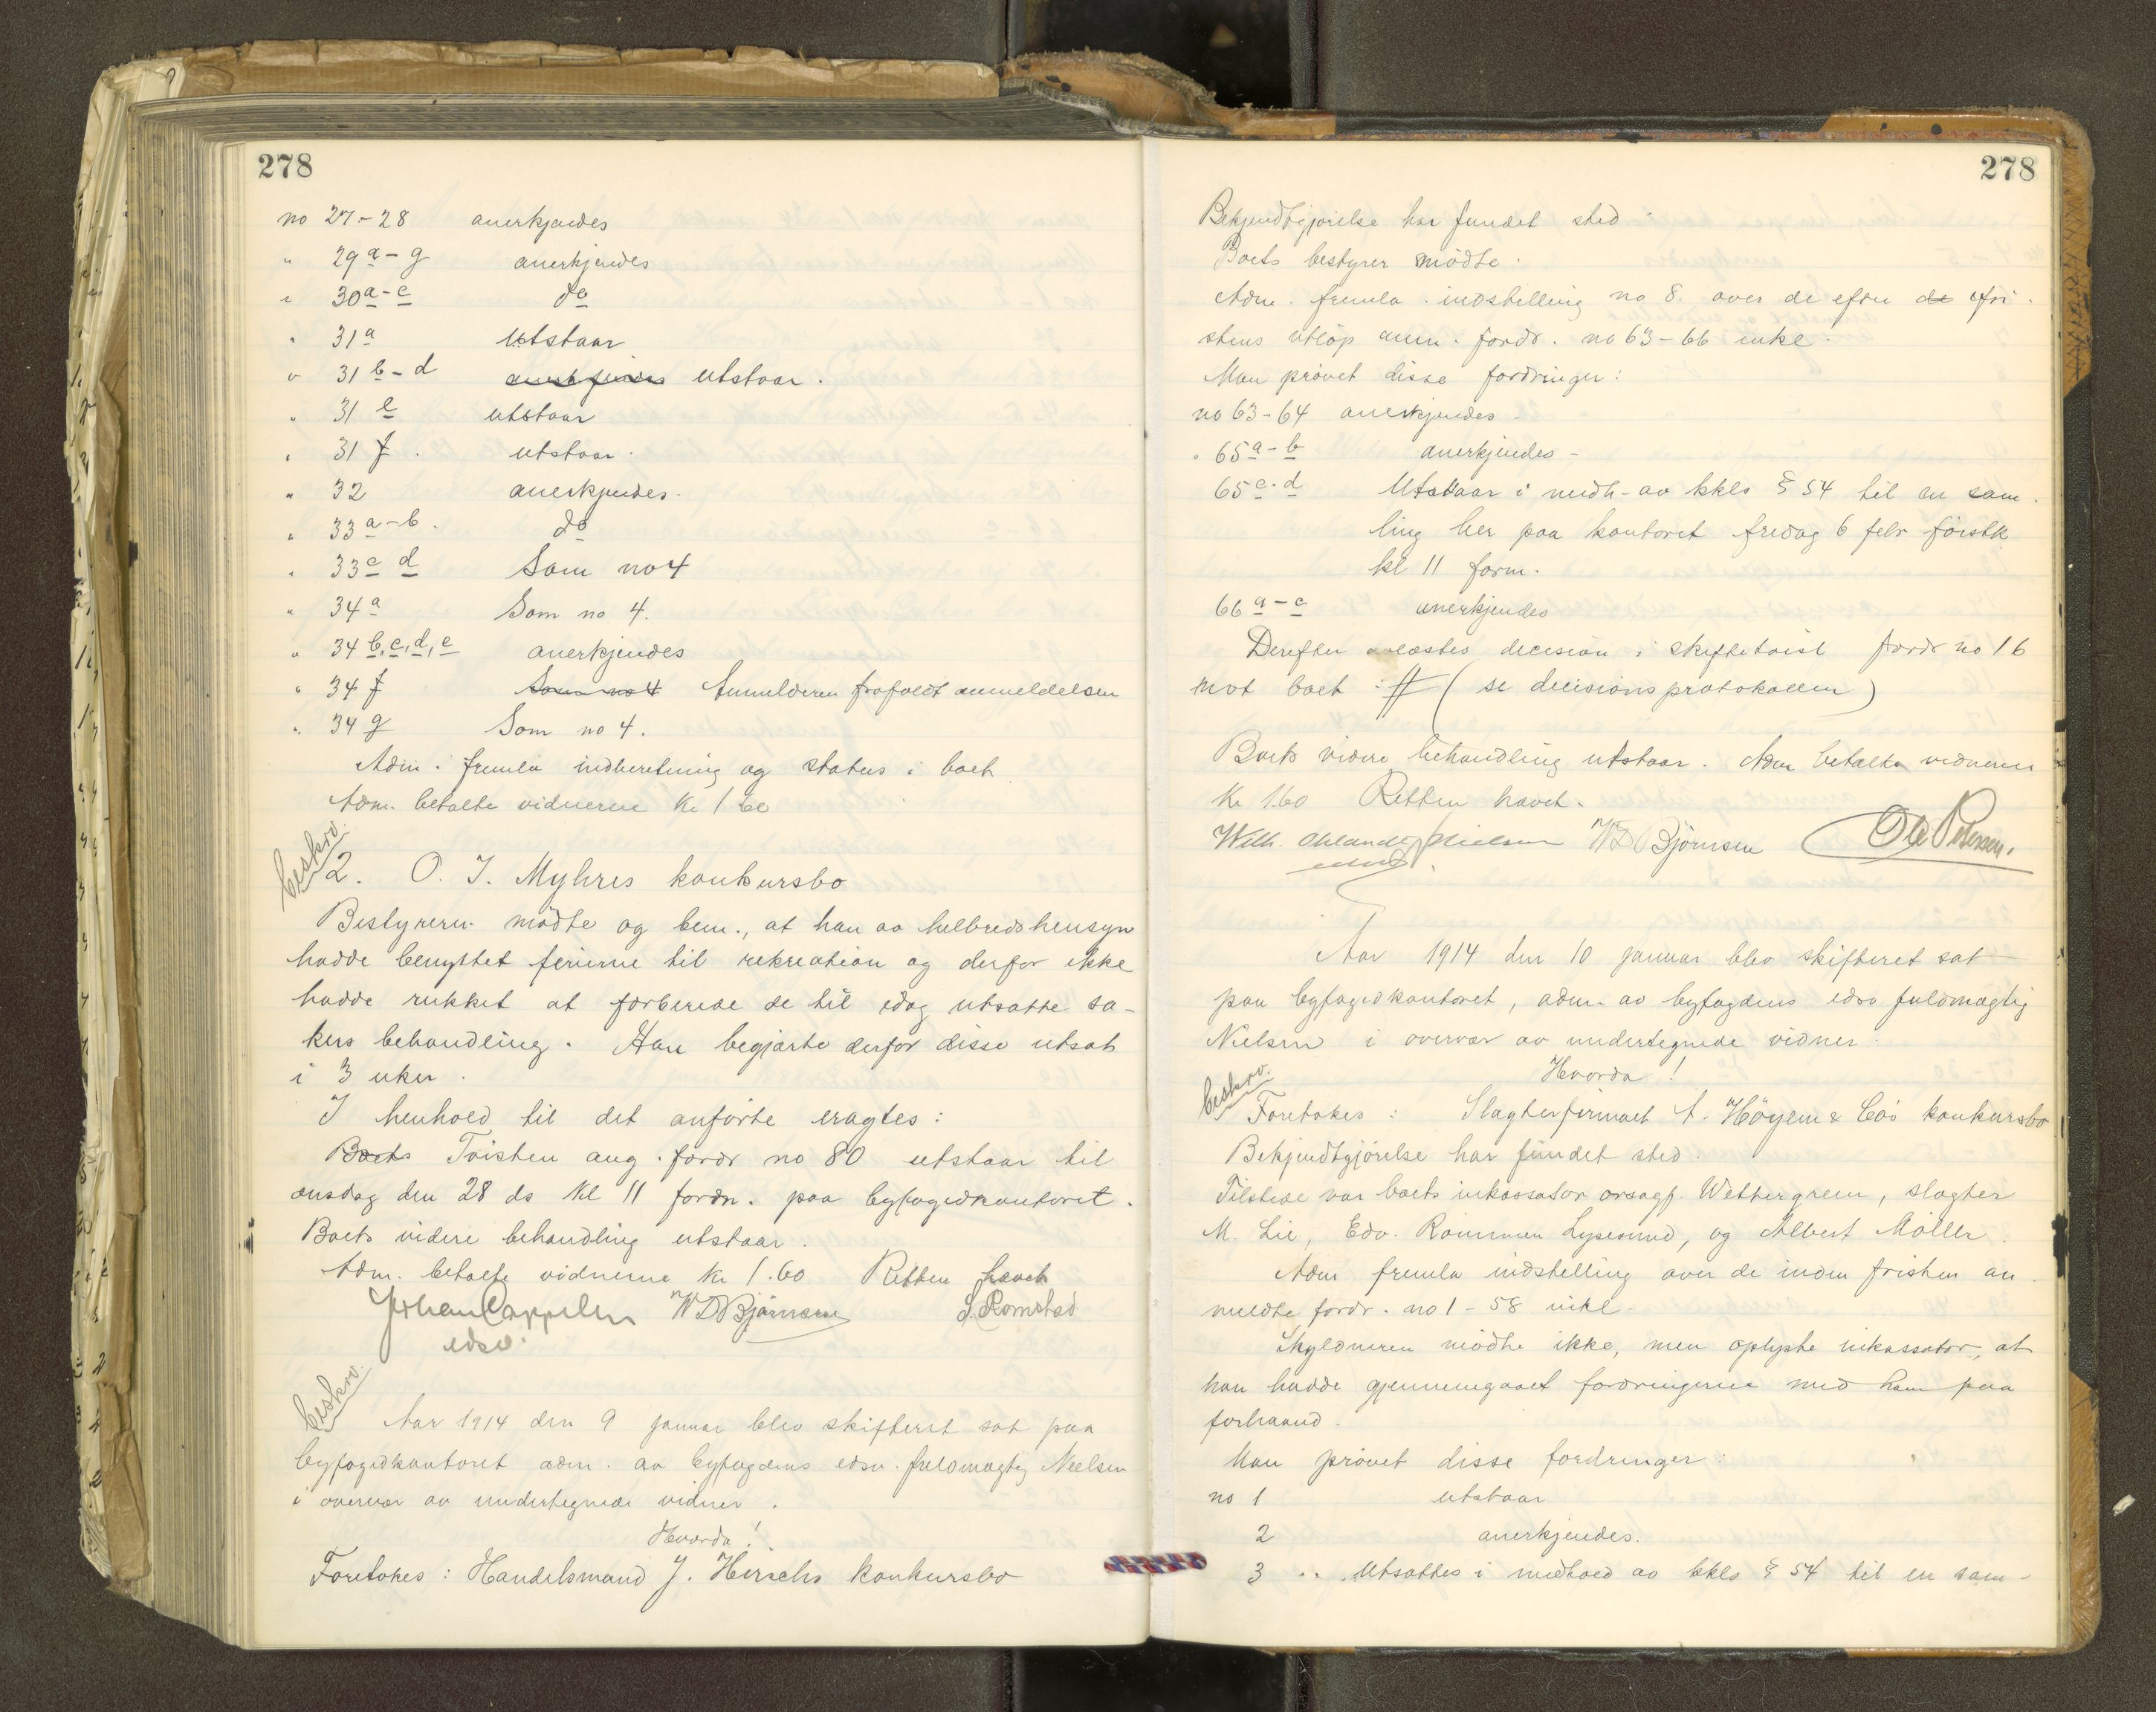 278
no 27-28 anerkjendes
" 29 a-g anerkjendes
" 30 a-e do
" 31 a utstaar
" 31 b-d anerkjendes utstaar.
" 31 e utstaar
" 31 f. utstaar.
" 32 anerkjendes.
" 33 a-b. do
" 33 c d Som no 4
" 34 a Som no 4.
" 34 b, c, d, e anerkjendes
" 34 f Som no 4 Anmelderen frafaldt anmeldelsen
" 34 g Som no 4.
Adm. fremla indberetning og status i boet
Adm. betalte vidnerne Kr 1.60
beskrv.
2. O. J. Myhres konkursbo
Bestyreren mödte og bem., at han av helbredshensyn
hadde benyttet ferierne til rekreation og derfor ikke
hadde rukket at forberede de til idag utsatte sa-
kers behandling. Han begjærte derfor disse utsat
i 3 uker.
I henhold til det anförte eragtes:
Boets Tvisten ang. fordr no 80 utstaar til
onsdag den 28 ds kl 11 form. paa byfogedkontoret.
Boets videre behandling utstaar.
Adm. betalte vidnerne Kr 1.60 Retten hævet
Johan Cappelen W D Bjørnsen S. Romstad
edsv.
beskrv.
Aar 1914 den 9 januar blev skifteret sat paa
byfogedkontoret adm. av byfogdens edsv. fuldmægtig Nielsen
i overvær av undertegnede vidner.
Hvorda!
Foretokes: Handelsmand J. Herschs konkursbo
278
Bekjendtgjörelse har fundet sted
Boets bestyrer mödte.
Adm. fremla indstilling no 8 over de efter de fri-
stens utlöp anm. fordr. no 63-66 inkl.
Man prövet disse fordringer:
no 63-64 anerkjendes
" 65 a-b anerkjendes
65 c-d Utstaar i medh. av kkls § 54 til en sam-
ling her paa kontoret fredag 6 febr förstk
kl 11 form.
66 a-c anerkjendes
Derefter avlæstes decision i skiftetvist fordr no 16
mot boet: # (se decisionsprotokollen)
Boets videre behandling utstaar. Adm betalte vidnerne
Kr 1.60 Retten hævet.
Wilh. Nielsen W D Bjørnsen Ole Petersen.
Aar 1914 den 10 januar blev skifteret sat
paa byfogedkontoret, adm. av byfogdens edsv fuldmægtig
Nielsen i overvær av undertegnede vidner.
Hvorda!
beskrv.
Foretokes: Slagterfirmaet A. Höyem & Co's konkursbo
Bekjendtgjörelse har fundet sted.
Tilstede var boets inkassator orsagf. Wettergreen, slagter
M. Lie, Edv. Rømmen Lysesund, og Albert Möller.
Adm fremla indstilling over de inden fristen an-
meldte fordr. no 1-58 inkl.
Skyldneren mödte ikke, men oplyste inkassator, at
han hadde gjennemgaaet fordringerne med ham paa
forhaand.
Man prövet disse fordringer:
no 1 utstaar
2 anerkjendes.
3 Utsattes i medhold av kkls § 54 til en sam-